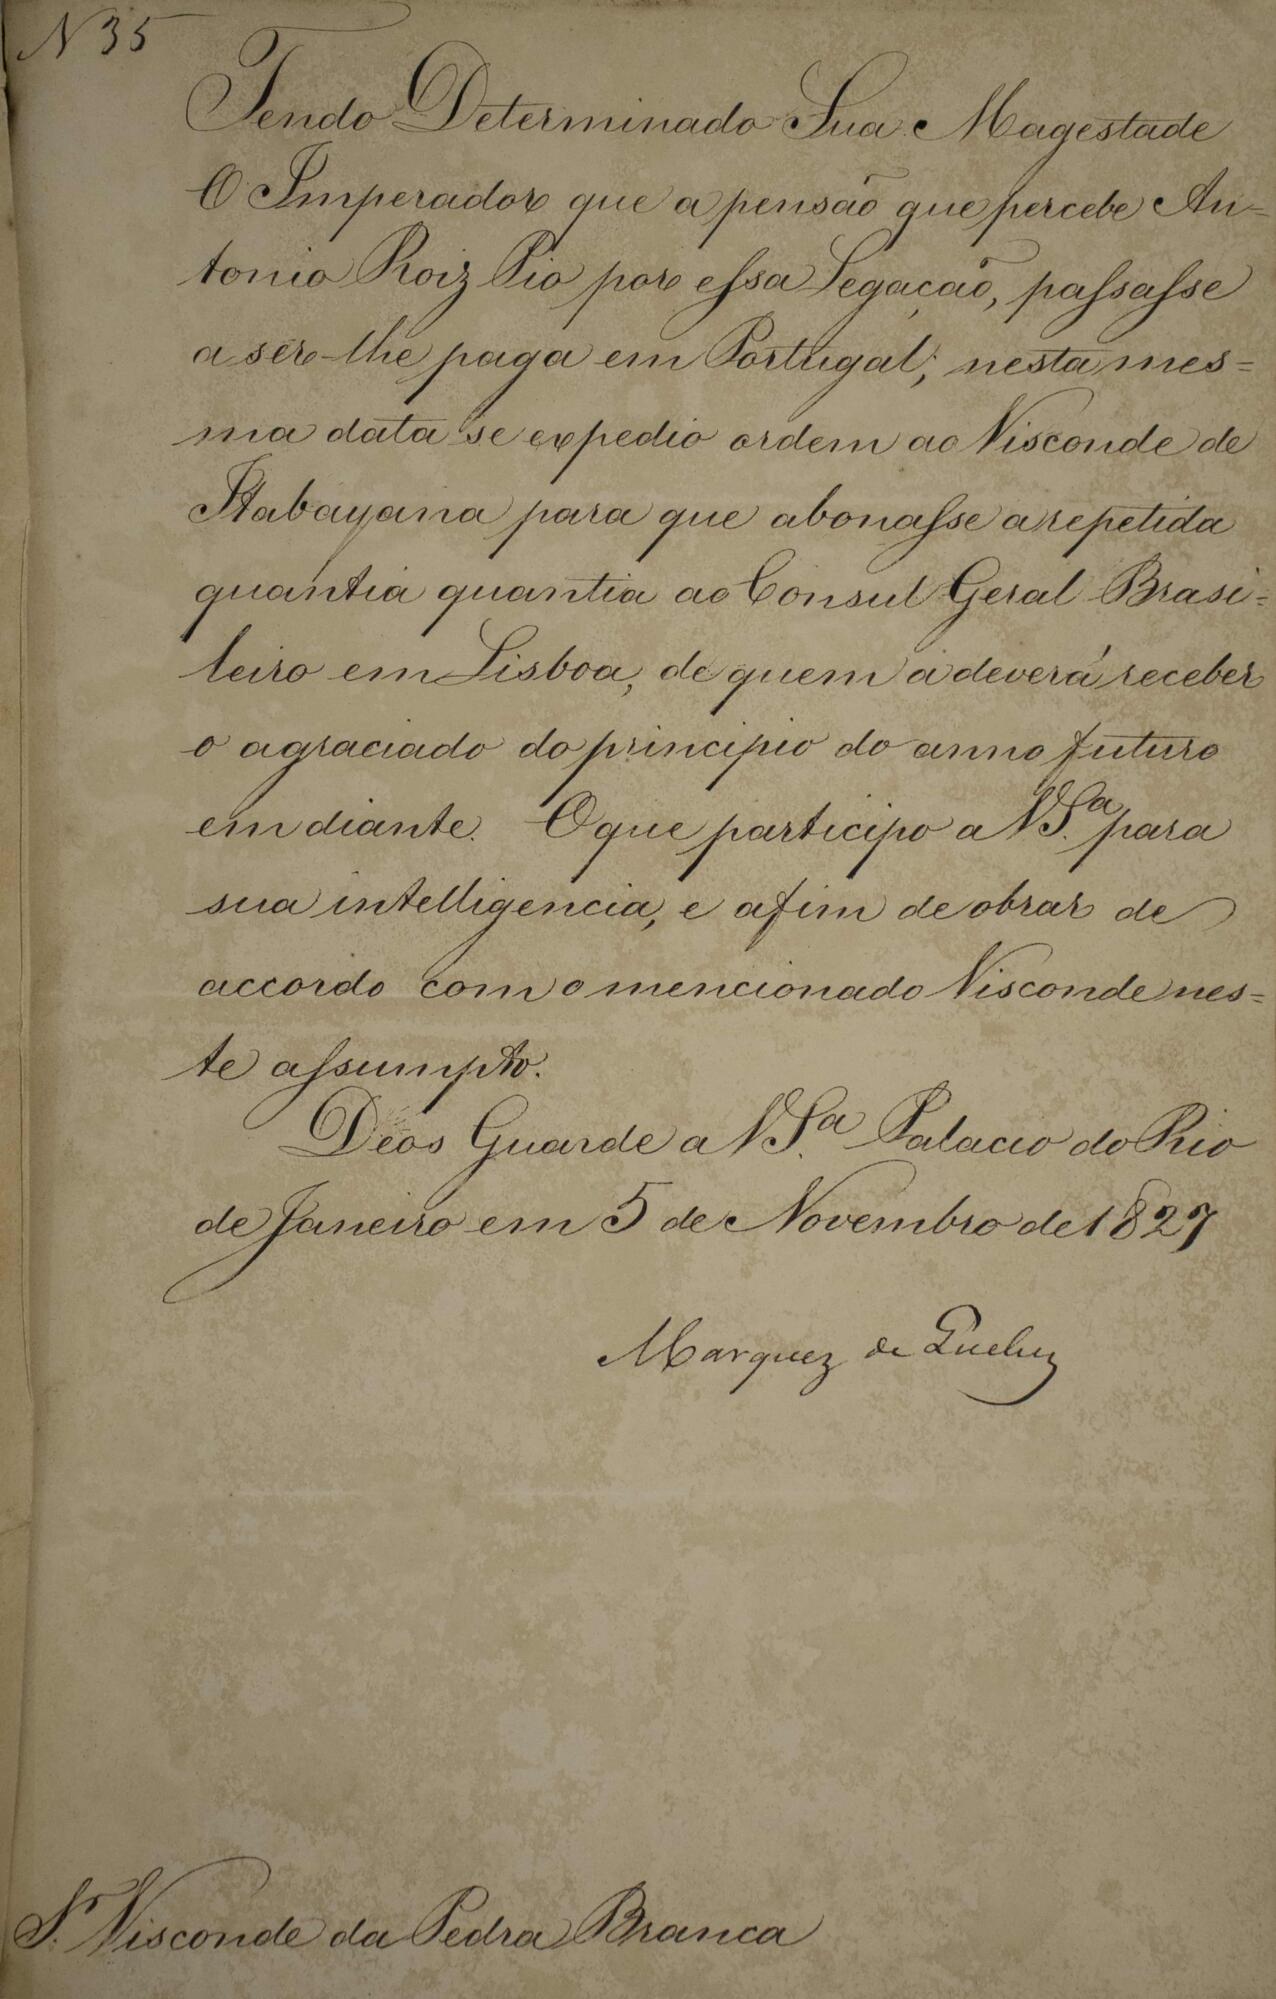 N 35
Tendo Determinado Sua Magestade
O Imperador que a pensão que percebe An=
tonio Roiz Pio por essa Legação, passasse
a ser-lhe paga em Portugal; nesta mes=
ma data se expedio ordem ao Visconde de
Itabayana para que abonasse a repetida
quantia quantia ao Consul Geral Brasi=
leiro em Lisboa, de quem a deverá receber
o agraciado do principio do anno futuro
em diante. O que participo a V S.ª para
sua intelligencia, e afim de obrar de
accordo com o mencionado Visconde nes=
te assumpto.
Deos Guarde a V S.ª Palacio do Rio
de Janeiro em 5 de Novembro de 1827
Marquez de Queluz
S.r Visconde da Pedra Branca